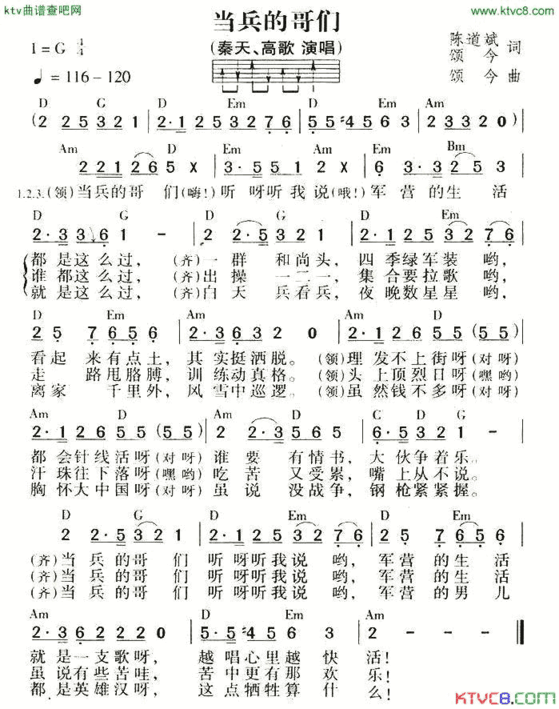 ktv曲谱查吧网
www.ktvc8.com
当兵的哥们
(秦天、高歌 演唱)
1=G 4/4
陈道斌 颂今 词
颂今 曲
♩=116-120
D G D Em D Em Am
(2 2 5 3 2 1 | 2·1 2 5 3 2 7 6 | 5 5 4 5 6 3 | 2 3 3 2 0)
Am D Em Am Em Bm
2 2 1 2 6 5 X | 3·5 5 1 2 X | 3·3 2 5 3
1.2.3.(领)当兵的哥 们(嗨!)听 呀听我说(哦!) 军 营 的 生 活
D G D G D Em
2·3 3 3 6 1 - | 2 2·5 3 2 1 | 2·2 5 3 2 7 6
都 是这么过, (齐)一 群 和尚头, 四 季绿军装 哟,
谁 都这么过, (齐)出 操 一二一, 集 合要拉歌 哟,
就 是这么过, (齐)白 天 兵看兵, 夜 晚数星星 哟,
D Em Am D Am D
2 5 7 6 5 6 | 2·5 3 6 3 2 0 | 2·1 2 6 5 5 (5 5)
看 起 来有点土, 其 实挺洒脱。 (领)理 发不上街呀(对呀)
走 路甩胳膊, 训 练动真格。 (领)头 上顶烈日呀(嘿哟)
离 家 千里外, 风 雪中巡逻。 (领)虽 然钱不多呀(对呀)
Am D Am G C D G
2·1 2 6 5 5 (5 5) | 2·2 2 3 2 | 5·5 3 2 1 -
都 会针线活呀(对呀) 谁 要 有情书, 大 伙争着乐。
汗 珠往下落呀(嘿哟) 吃 苦 又受累, 嘴 上从不说。
胸 怀大中国呀(对呀) 虽 说 没战争, 钢 枪紧紧握。
D G D Em D Em
2 2·5 3 2 1 | 2·2 5 3 2 7 6 | 5· 2 5 7 6 5 6
(齐)当 兵 的哥 们 听 呀听我说 哟, 军 营 的生 活
(齐)当 兵 的哥 们 听 呀听我说 哟, 军 营 的生 活
(齐)当 兵 的哥 们 听 呀听我说 哟, 军 营 的男 儿
Am D Em Am
2·3 6 2 2 2 0 | 5·5 4 5 6 3 | 2 - - - ‖
就 是一支歌呀, 越 唱心里越 快 活!
虽 说有些苦哇, 苦 中更有那 欢 乐!
都 是英雄汉呀, 这 点牺牲算 什 么!
KTVC8.COM